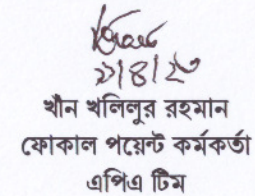 ২১/৪/২৩
খাঁন খলিলুর রহমান
ফোকাল পয়েন্ট কর্মকর্তা
এপিএ টিম